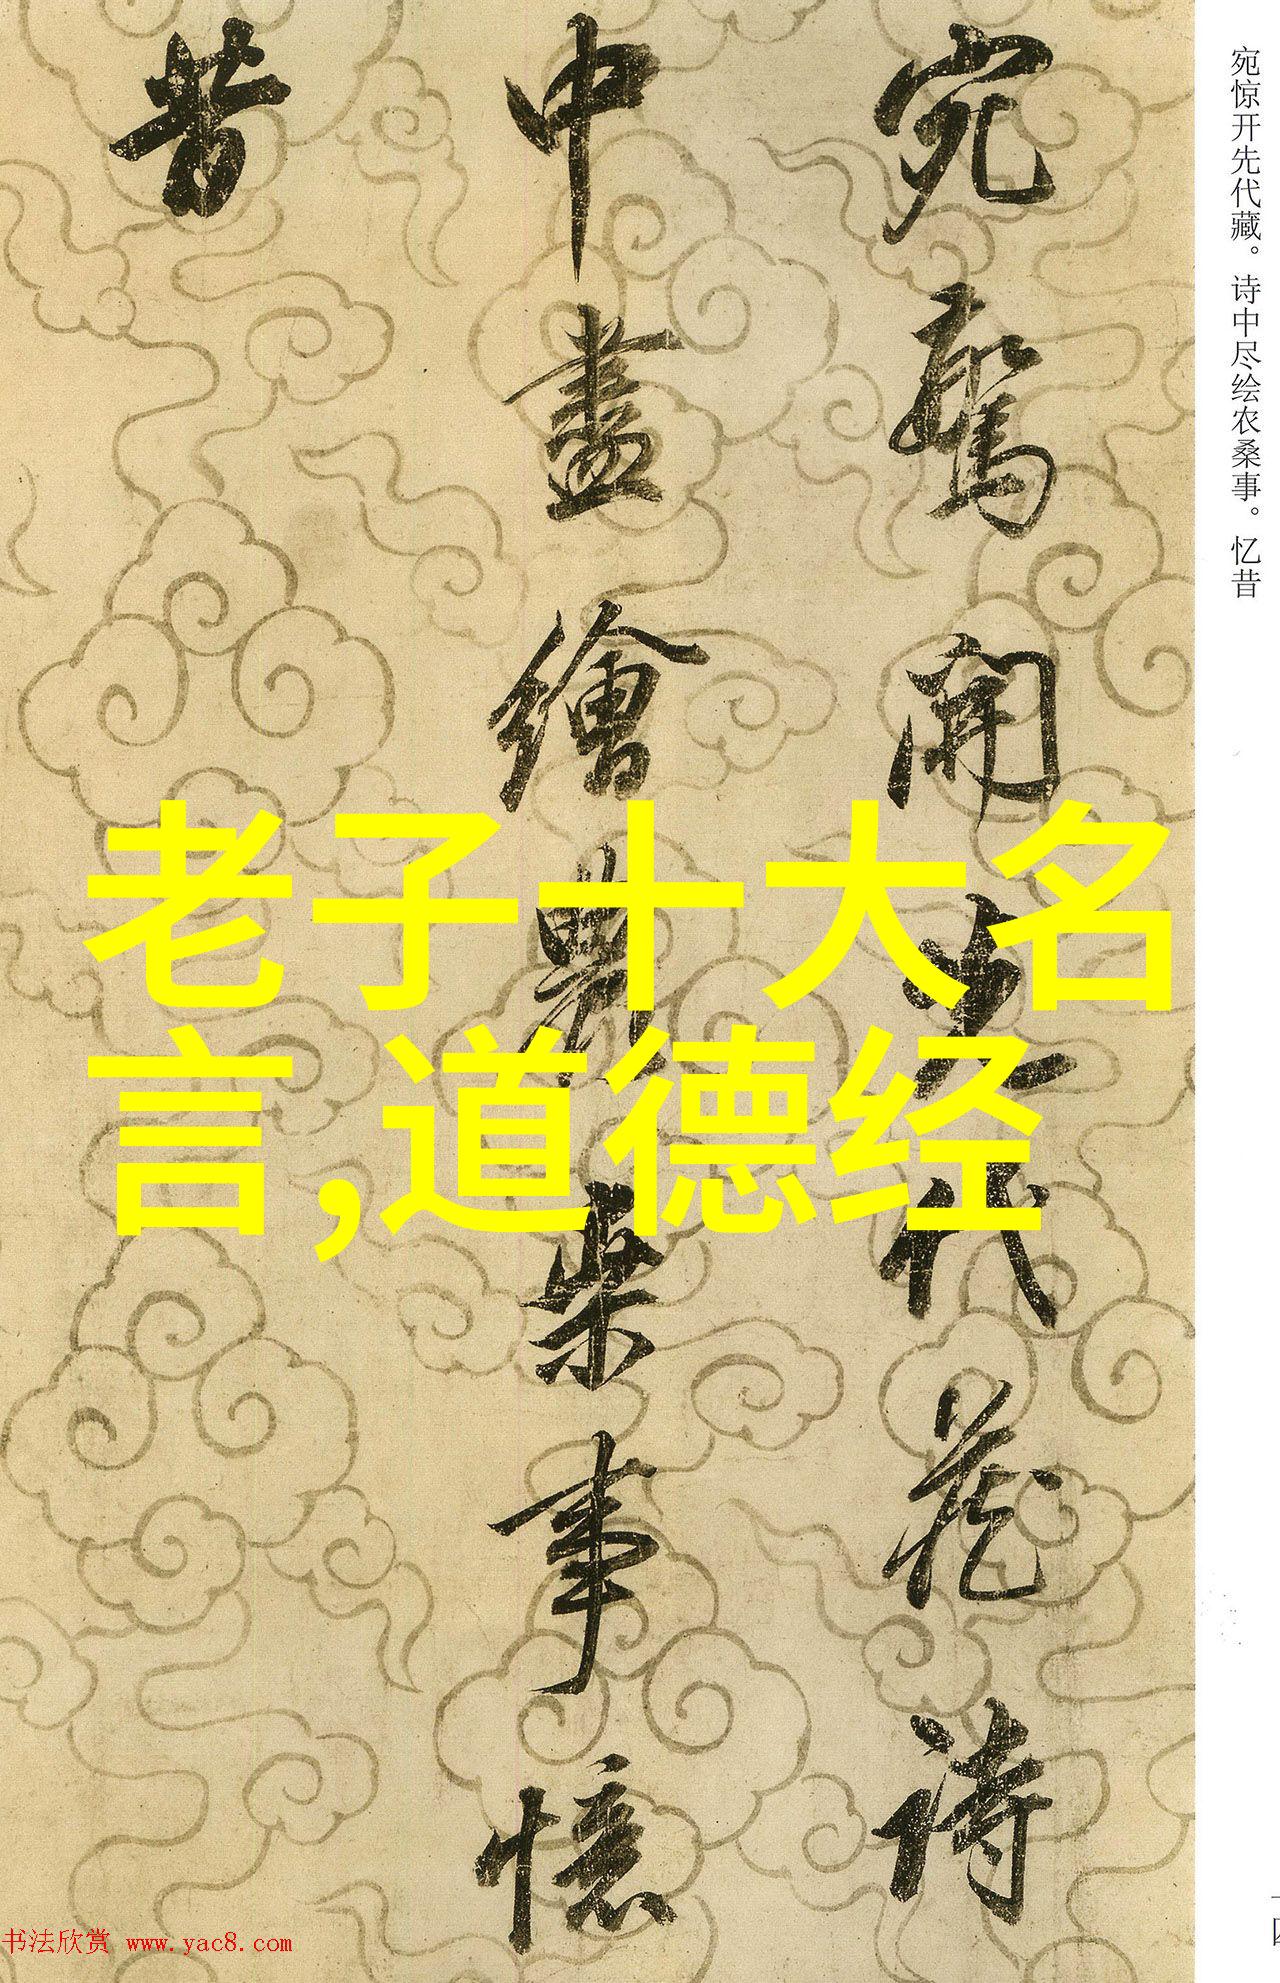 宛惊开先代藏。诗中尽绘农桑事。忆昔
宛驚開先代藏詩
中盡繪農桒事憶
昔
老子十大名
言,道德经
书法欣赏 www.yac8.com